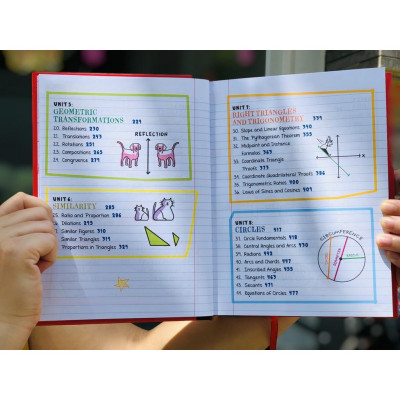 UNIT 5:
GEOMETRIC
TRANSFORMATIONS 229
20. Reflections 230
21. Translations 243
22. Rotations 251
23. Compositions 263
24. Congruence 277
REFLECTION
UNIT 6:
SIMILARITY 285
25. Ratio and Proportion 286
26. Dilations 293
27. Similar Figures 310
Similar Triangles 317
Proportions in Triangles 329
UNIT 7:
RIGHT TRIANGLES
AND TRIGONOMETRY 339
30. Slope and Linear Equations 340
31. The Pythagorean Theorem 355
32. Midpoint and Distance
Formulas 363
33. Coordinate Triangle
Proofs 377
34. Coordinate Quadrilateral Proofs 386
35. Trigonometric Ratios
36. Laws of Sines and Cosines 407
x
UNIT 8:
CIRCLES 417
37. Circle Fundamentals 418
38. Central Angles and Arcs 430
39. Radians 442
40. Arcs and Chords 447
41. Inscribed Angles 455
42. Tangents 463
43. Secants 471
44. Equations of Circles 477
CIRCUMFERENCE